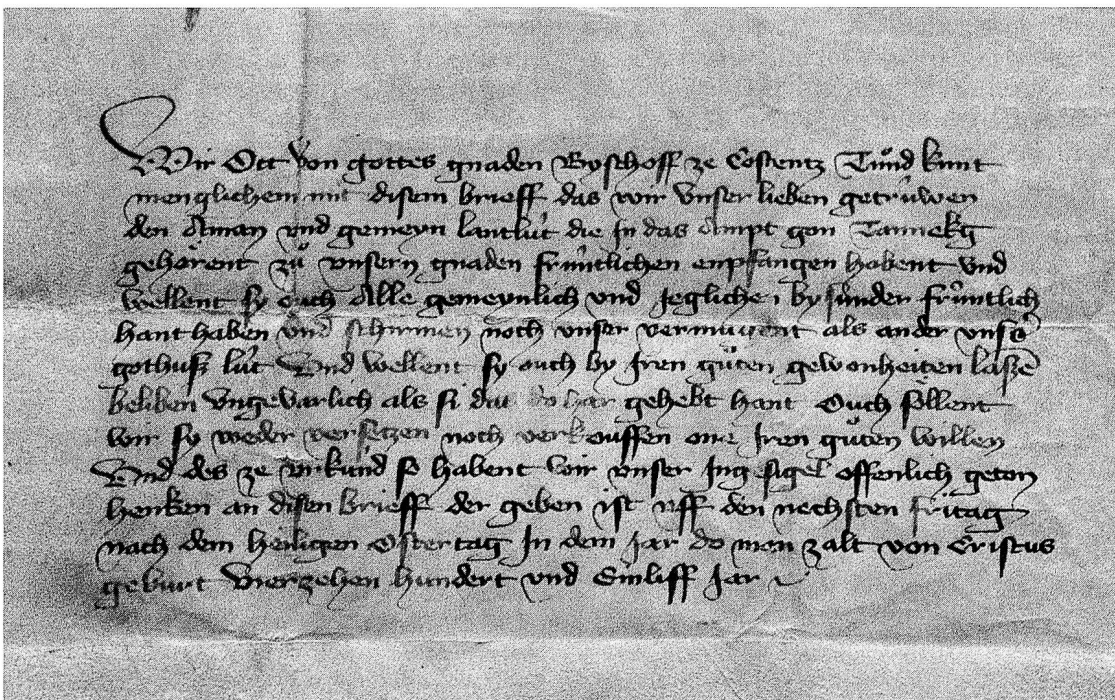 Wir Ott von gottes gnaden Byschoff ze Costentz Tůnd kunt
menglichem mit disem brieff das wir vnser lieben getrúwen
den Aman vnd gemeyn lantlút die In das Ampt gon Tannekg
gehörent zů vnsern gnaden frúntlichen enpfangen habent vnd
wellent sy ouch Alle gemeynlich vnd Jeglichen by sunder frúntlich
hanthaben vnd schirmen noch vnser vermuvent als ander vnser
gothusz lút Vnd wellent sy ouch by Iren gůten gewonheiten laszē
beliben Vngevarlich als si dat do har gehebt hant Ouch söllent
wir sy weder versetzen noch verkouffen one Iren gůten willen
Vnd des ze vrkund so habent wir vnser Ing sigel offenlich geton
henken an disen brieff der geben ist vff den nechsten fritag
nach dem heiligen Ostertag In dem Jar do men zalt von Cristus
geburt Vierzehen hundert vnd Einliff Jar